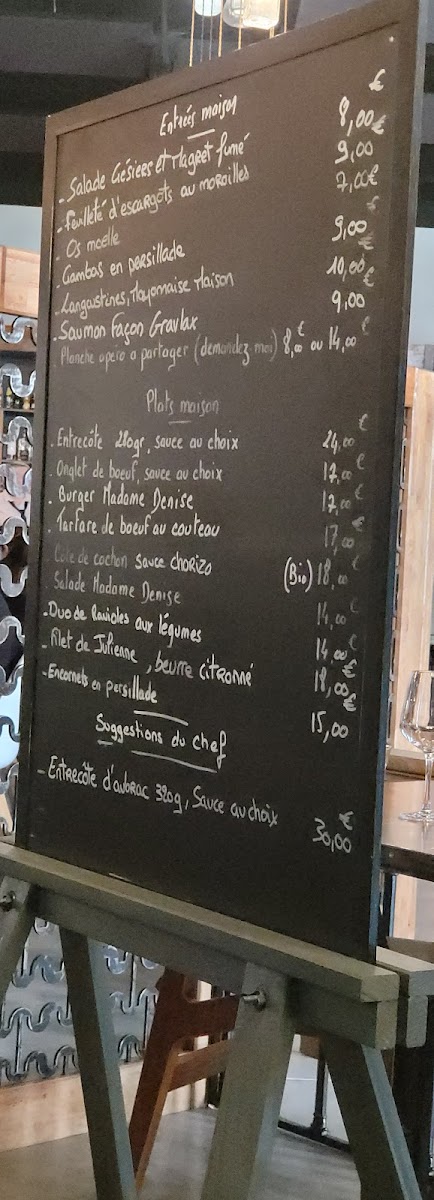 Entrées maison €
- Salade Gésiers et Magret fumé 8,00 €
- Feuilleté d'escargots au maroilles 9,00
- Os moelle 7,00 €
- Gambas en persillade 9,00 €
- Langoustines, Mayonnaise Maison 10,00 €
- Saumon Façon Gravlax 9,00 €
Planche apéro a partager (demandez moi) 8,00 € ou 14,00 €
Plats maison
- Entrecôte 280gr, sauce au choix 24,00 €
- Onglet de boeuf, sauce au choix 17,00 €
- Burger Madame Denise 17,00 €
- Tartare de boeuf au couteau 17,00 €
Côte de cochon sauce chorizo (Bio) 18,00 €
Salade Madame Denise 14,00 €
- Duo de Ravioles aux légumes 14,00 €
- Filet de Julienne, beurre citronné 18,00 €
- Encornets en persillade 15,00 €
Suggestions du chef
- Entrecôte d'aubrac 320g, Sauce au choix 30,00 €